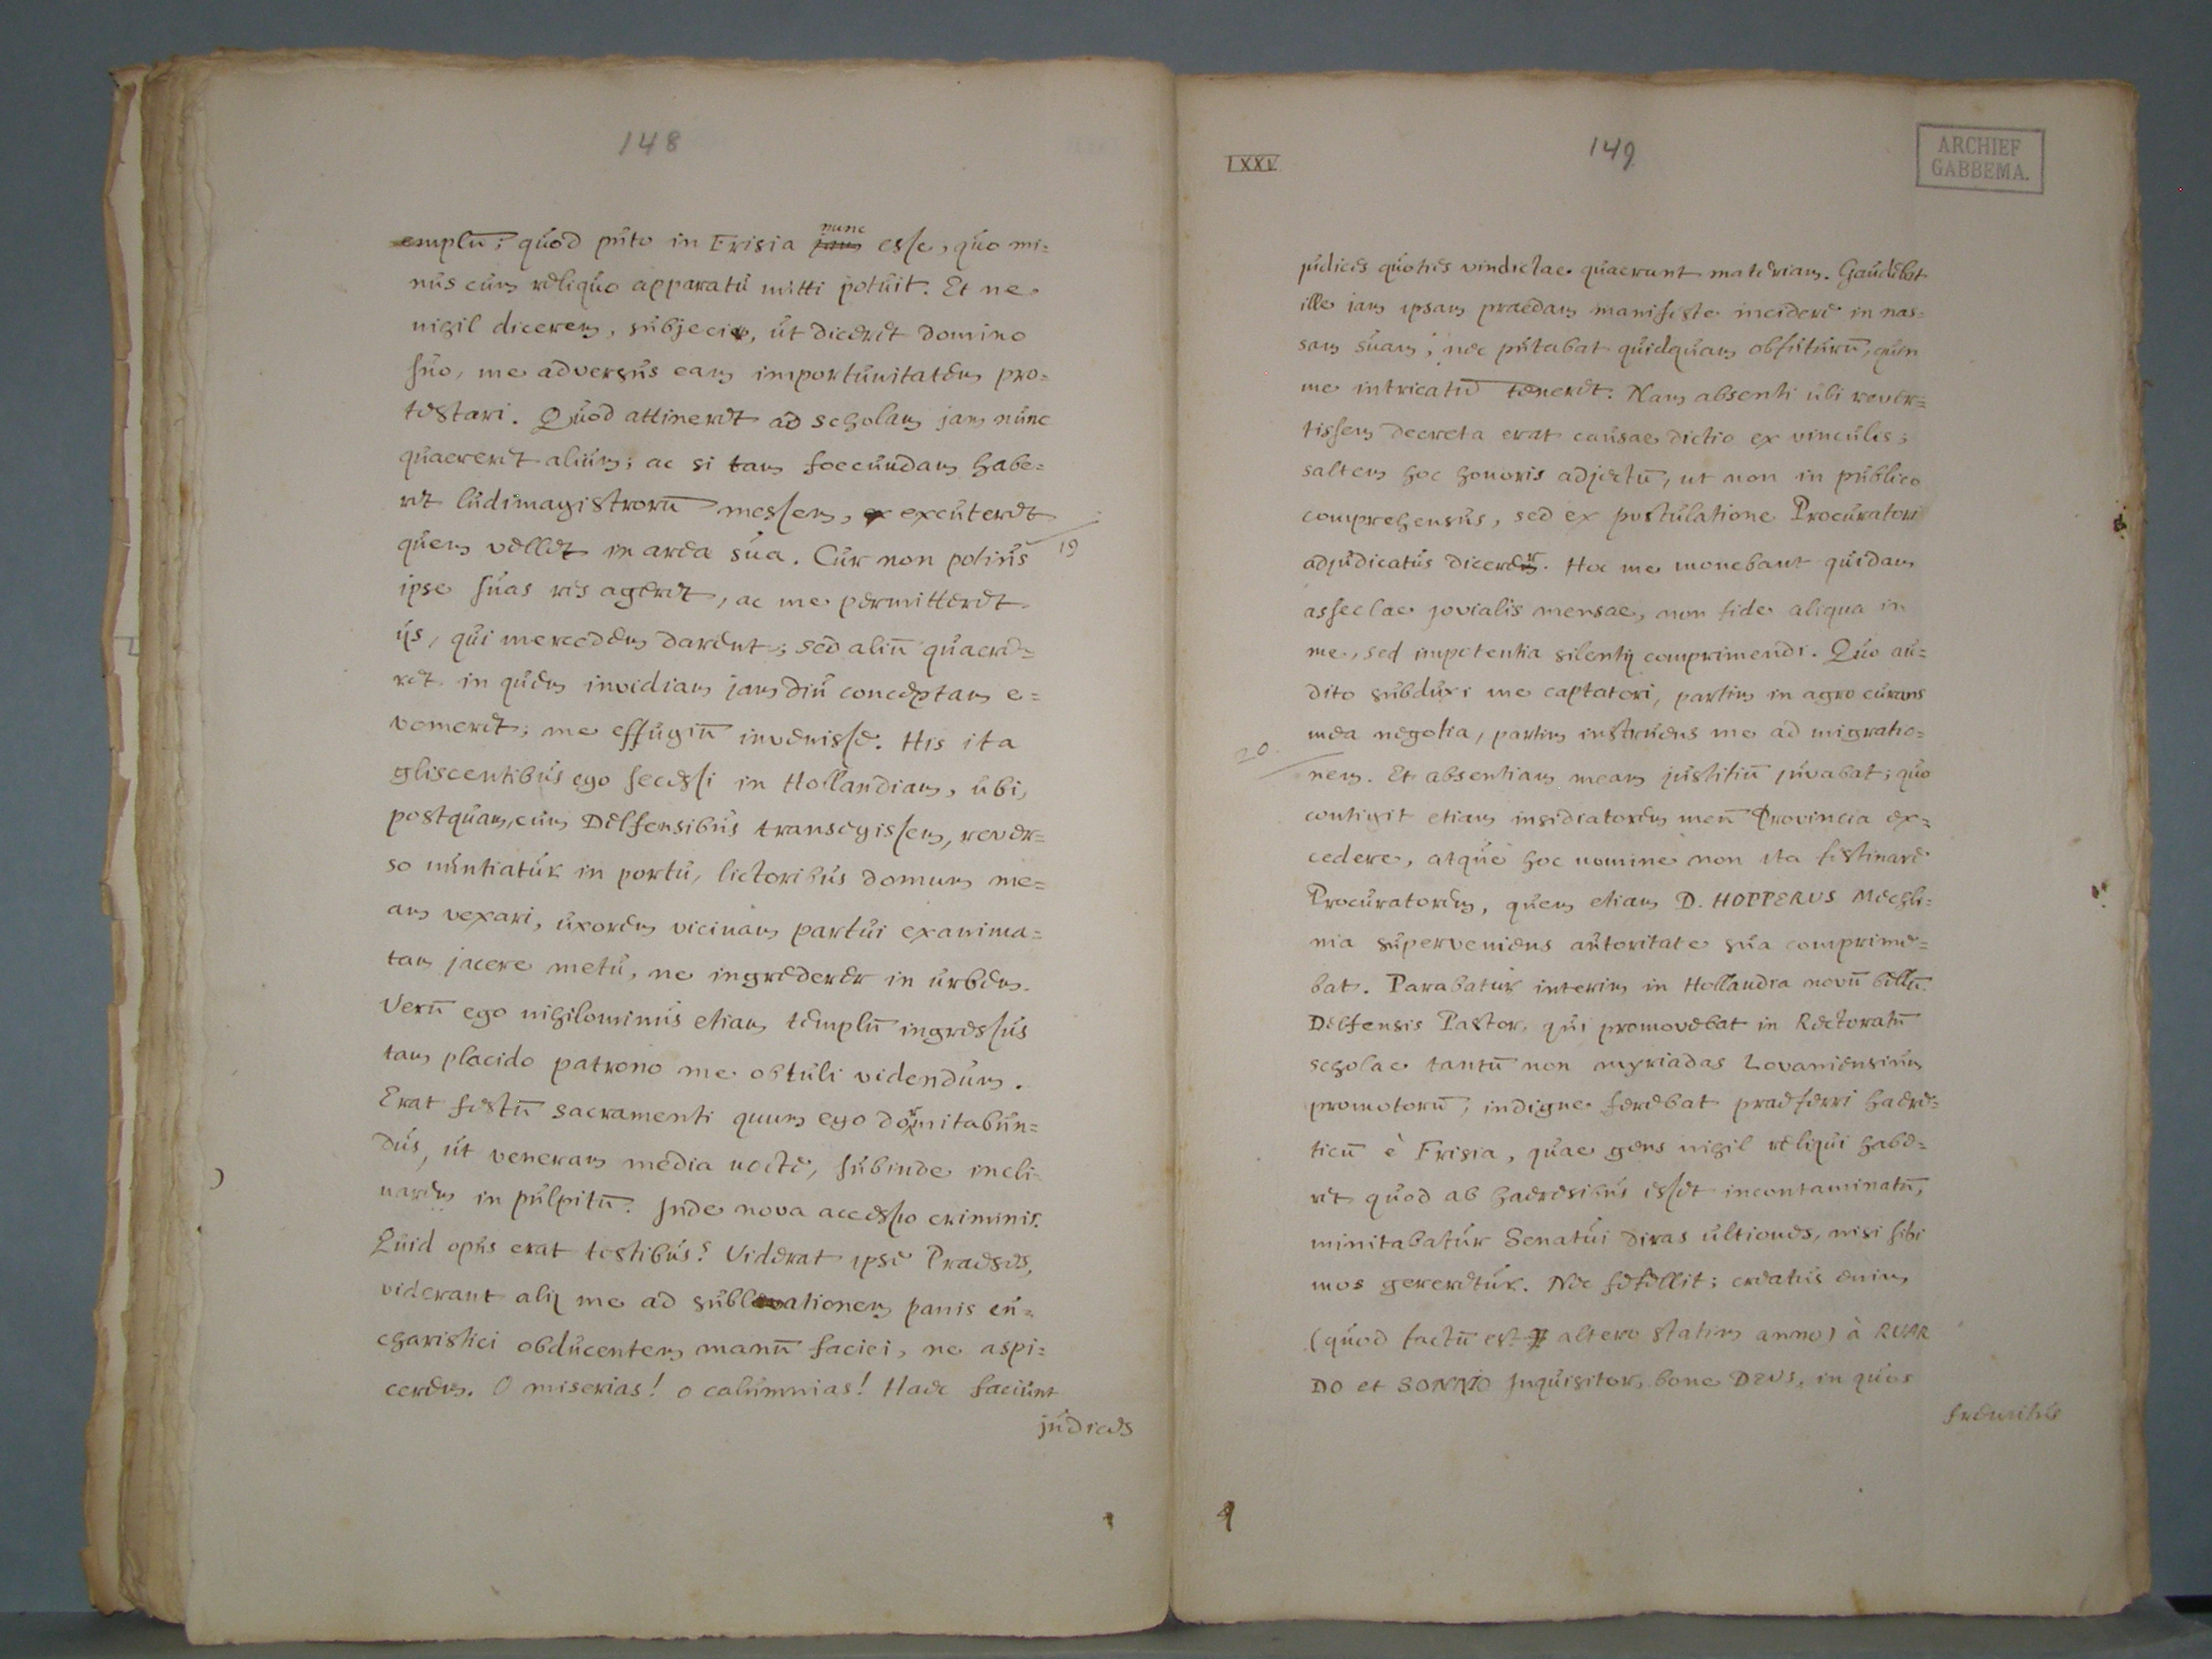 148
emplū; quod puto in Frisia nunc esse, quo mi=
nus cum reliquo apparatu mitti potuit. Et ne
nihil dicerem, subjeci, ut diceret domino
suo, me adversus eam importunitatem pro=
testari. Quod attineret ad scholam jam nunc
quaereret alium; ac si tam foecundam habe=
ret ludimagistrorū messem, excuteret
quem vellet in area sua. Cur non potius
19
ipse suas res ageret, ac me permitteret
ijs, qui mercedem darent; sed aliū quaere=
ret in quem invidiam jam diu conceptam e=
vomeret; me effugiū invenisse. His ita
gliscentibus ego secessi in Hollandiam, ubi,
postquam, cum Delfensibus transegissem, rever=
so nuntiatur in portu, lictoribus domum me=
am vexari, uxorem vicinam partui exanima=
tam jacere metu, ne ingrederer in urbem.
Verū ego nihilominus etiam templū ingressus
tam placido patrono me obtuli videndum.
Erat festū sacramenti quum ego dormitabun=
dus, ut veneram media nocte, subinde incli
narem in pulpitū. Inde nova accessio criminis.
Quid opus erat testibus? Viderat ipse Praeses,
viderant alij me ad sublevationem panis eu=
charistici obducentem manū faciei, ne aspi=
cerem. O miserias! o calumnias! Haec faciunt
judices
LXXV
149
ARCHIEF
GABBEMA.
judices quoties vindictae quaerunt materiam. Gaudebat
ille jam ipsam praedam manifeste incidere in nas=
sam suam; nec putabat quidquam obfuturū, quin
me intricatū teneret. Nam absenti ubi rever=
tissem decreta erat causae dictio ex vinculis;
saltem hoc honoris adjectū, ut non in publico
comprehensus, sed ex postulatione Procuratori
adjudicatus dicerer. Hoc me monebant quidam
asseclae jovialis mensae, non fide aliqua in
me, sed impotentia silentij comprimendi. Quo au=
dito subduxi me captatori, partim in agro curans
mea negotia, partim instruens me ad migratio=
20
nem. Et absentiam meam justitiū juvabat; quo
contigit etiam insidiatorem meū Provincia ex=
cedere, atque hoc nomine non ita festinare
Procuratorem, quem etiam D. HOPPERUS Mechli=
nia superveniens autoritate sua comprime=
bat. Parabatur interim in Hollandia novū bellū.
Delfensis Pastor, qui promovebat in Rectoratū
scholae tantū non myriadas Lovaniensium
promotorū, indigne ferebat praeferri haere=
ticū è Frisia, quae gens nihil reliqui habe=
ret quod ab haeresibus esset incontaminatū,
minitabatur Senatui diras ultiones, nisi sibi
mos gereretur. Nec fefellit; creatus enim
(quod factū est altero statim anno) à RUAR
DO et SONNIO Inquisitor, bone DEUS, in quos
fremitus